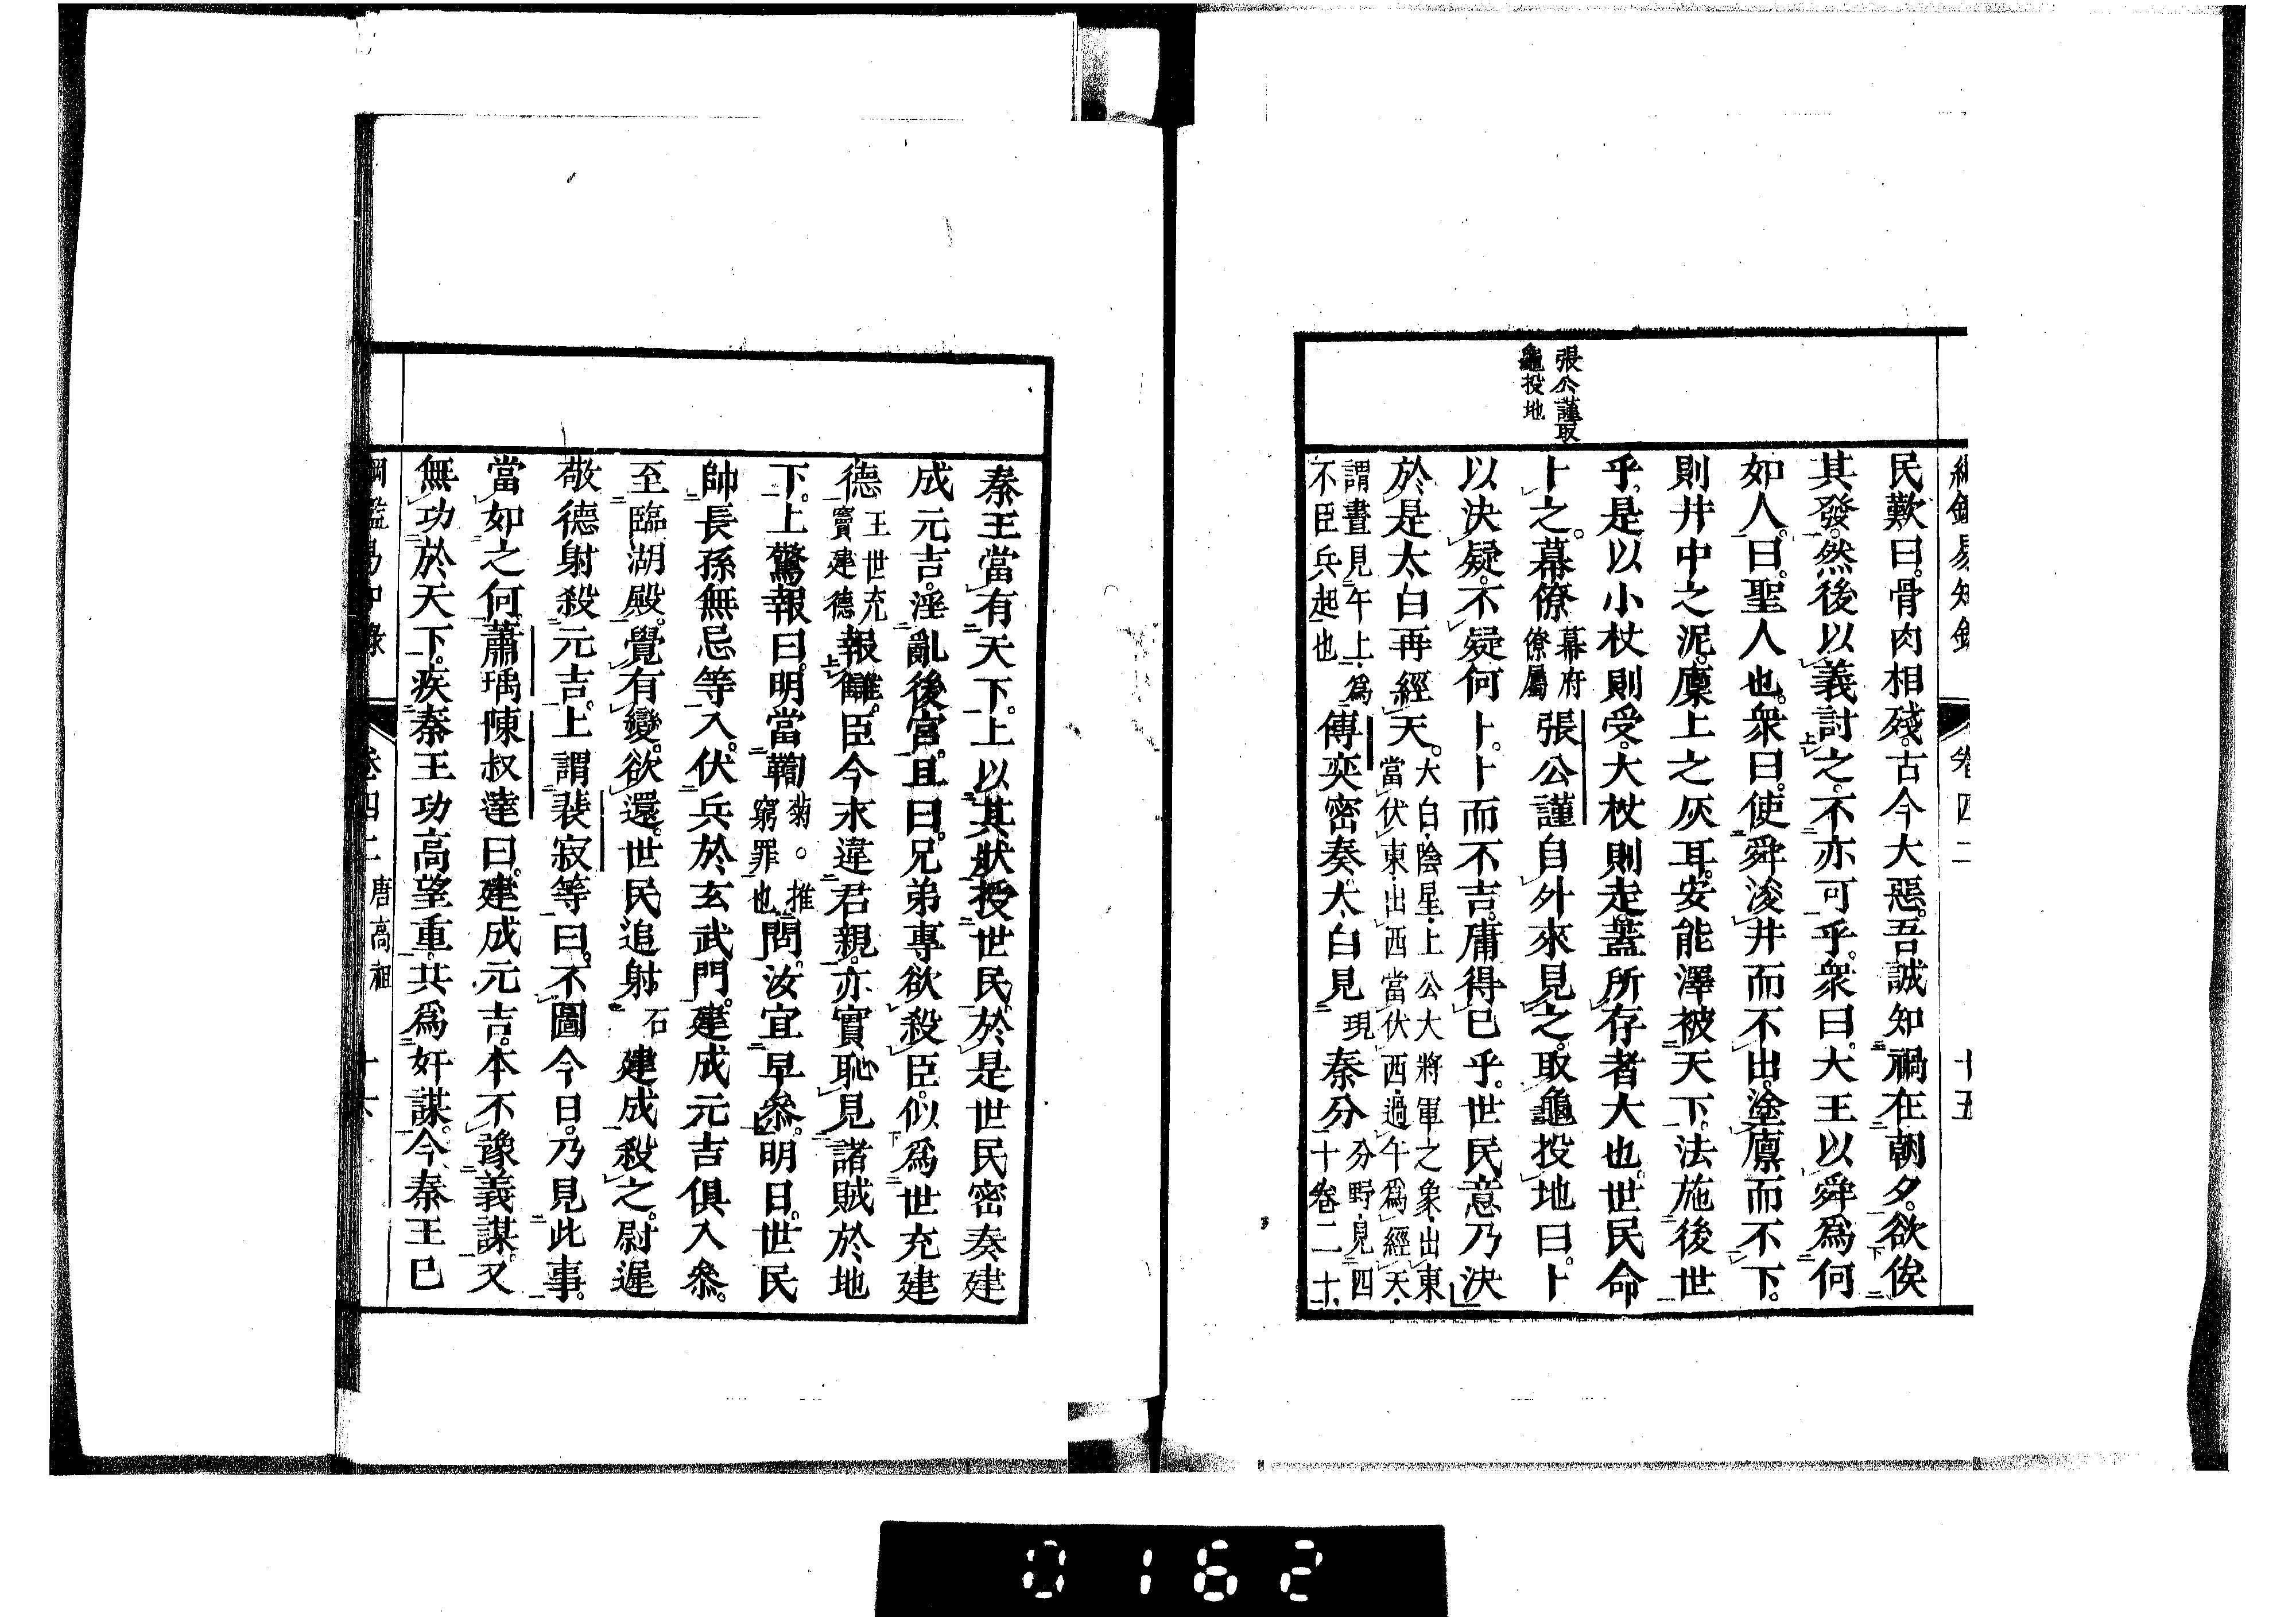 綱鑑易知錄 卷四二 十五
張公謹取
龜投地
民歎曰。骨肉相殘。古今大惡。吾誠知禍在朝夕。欲俟
其發。然後以義討之。不亦可乎。衆曰。大王以舜爲何
如人。曰。聖人也。衆曰。使舜浚井而不出。塗廩而不下。
則井中之泥。廩上之灰耳。安能澤被天下。法施後世
乎。是以小杖則受。大杖則走。蓋所存者大也。世民命
卜之。幕僚幕府僚屬張公謹自外來見之。取龜投地曰。卜
以決疑。不疑何卜。卜而不吉。庸得已乎。世民意乃決
於是太白再經天。大白陰星上公大將軍之象出東當伏東出西當伏西過午爲經天
謂晝見午上爲不臣兵起也傅奕密奏太白見現秦分分野見四十卷二十
秦王當有天下。上以其狀授世民。於是世民密奏建
成元吉。淫亂後宮。且曰。兄弟專欲殺臣。似爲世充建
德王世充竇建德報讎。臣今永違君親。亦實恥見諸賊於地
下。上驚報曰。明當鞫菊。推窮罪也問。汝宜早參。明日。世民
帥長孫無忌等入。伏兵於玄武門。建成元吉俱入參。
至臨湖殿。覺有變。欲還。世民追射石建成殺之。尉遲
敬德射殺元吉。上謂裴寂等曰。不圖今日。乃見此事。
當如之何。蕭瑀陳叔達曰。建成元吉。本不豫義謀。又
無功於天下。疾秦王功高望重。共爲奸謀。今秦王已
綱鑑易知錄 卷四二 唐高祖 十六
0162